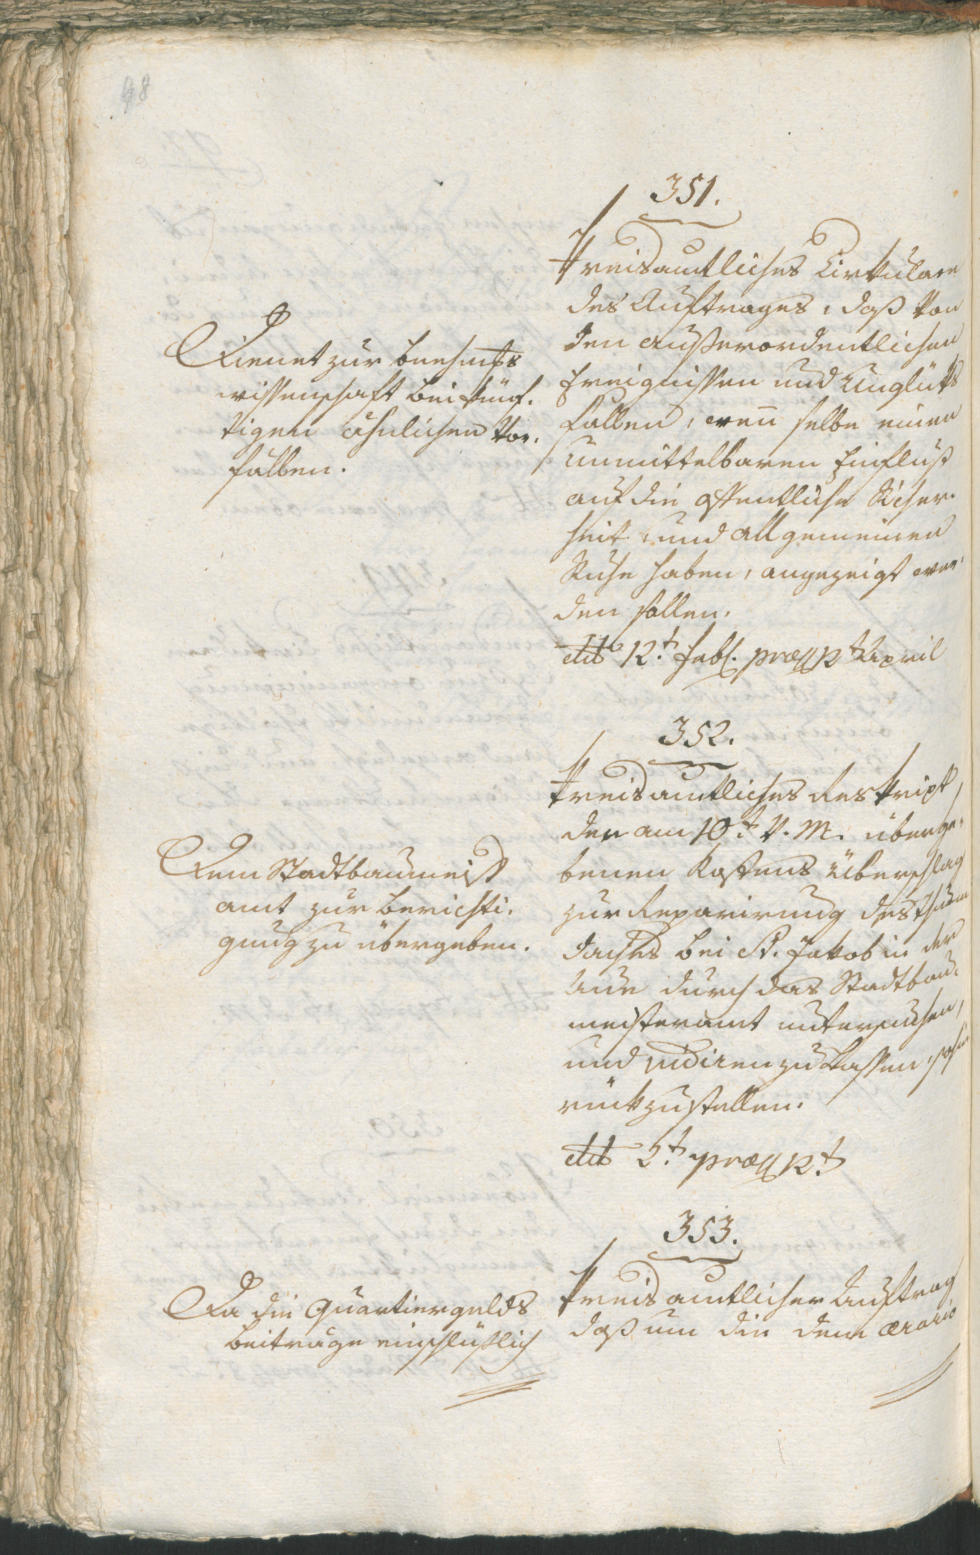 98
351.
Kreisamtliches Cirkulare
des Auftrages, daß von
den außerordentlichen
Ereignissen und Unglüks
fällen, wenn selbe einen
unmittelbaren Einfluß
auf die öffentliche Sicher-
heit, und allgemeinen
Ruhe haben, angezeigt wer-
den sollen.
ddto 12.t præs 12t April
Dienet zur
wissenschaft bei künf-
tigen ähnlichen Vor-
fällen.
352.
Kreisamtliches Reskript
den am 10.t v. M. überge-
benen Kostens Überschlag
zur Reparirung des Thurm
daches bei St. Jakob in der
Aue durch das Stadtbau-
meisteramt untersuchen,
und zu lassen,
rückzustellen.
ddto 2.t præs 12.t
Dem Stadtbaumeist
amt zur Berichti-
gung zu übergeben.
353.
Kreisamtlicher Auftrag
daß um die dem ærario
Da die Quartiergelds
beiträge einschlüßlich